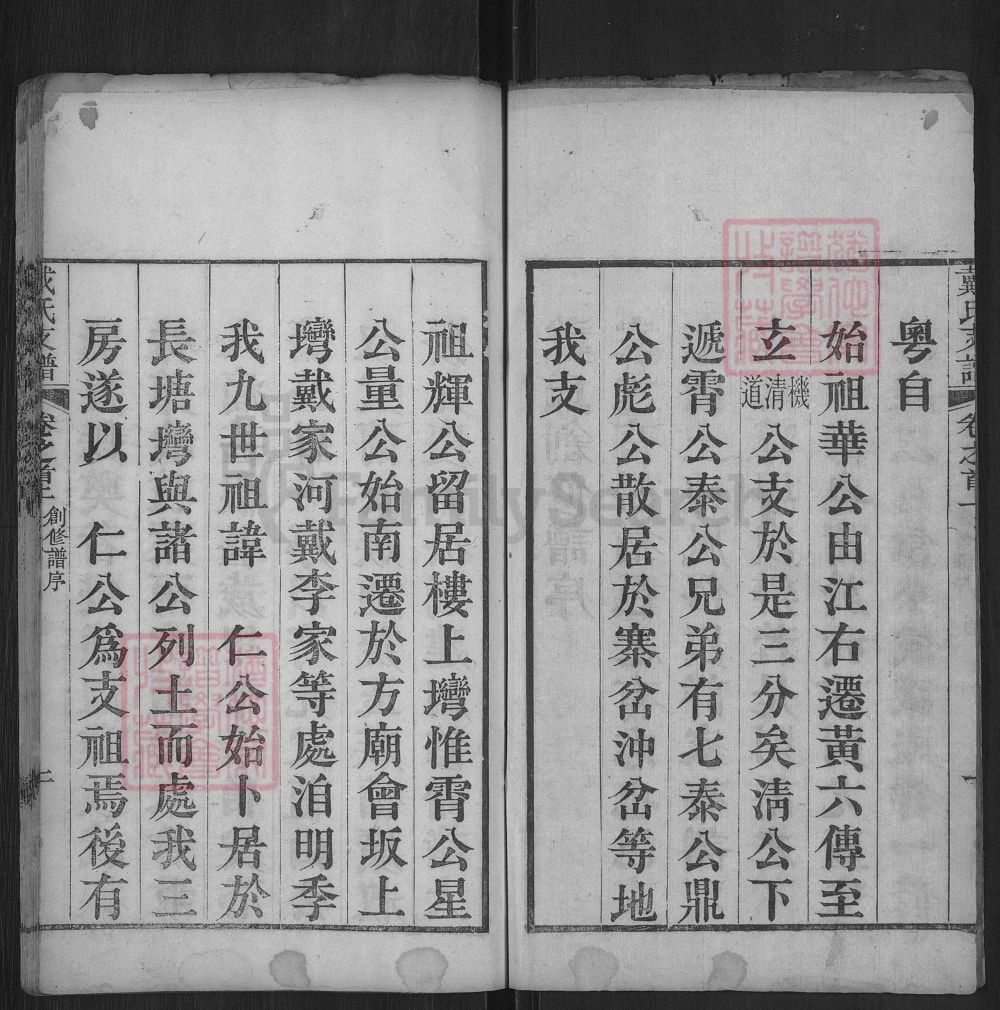 戴氏支譜 卷之首
粵自
始祖華公由江右遷黃六傳至
立機清道公支於是三分矣淸公下
遞霄公泰公兄弟有七泰公鼎
公彪公散居於寨岔沖岔等地
我支
祖輝公留居樓上壪惟霄公星
公量公始南遷於方廟會坂上
壪戴家河戴李家等處洎明季
我九世祖諱 仁公始卜居於
長塘壪與諸公列土而處我三
房遂以 仁公爲支祖焉後有
戴氏支譜 卷之首 創修譜序
FamilySearch